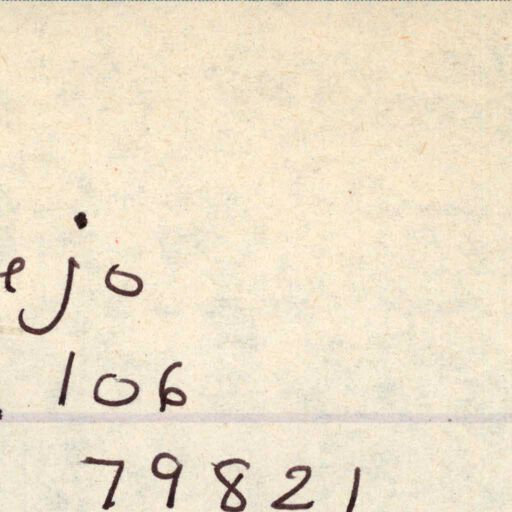 ejo
. 106
79821